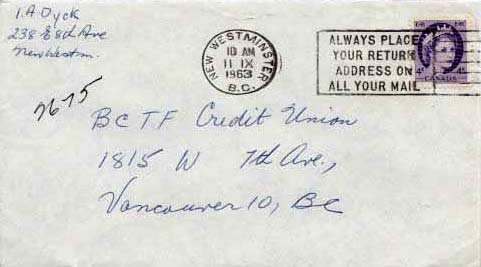 I.A Dyck
238 E 8th Ave
New Westm.
NEW WESTMINSTER
10 AM
11 IX
1963
B.C.
ALWAYS PLACE
YOUR RETURN
ADDRESS ON
ALL YOUR MAIL
4¢ 4¢
CANADA
2675
BCTF Credit Union
1815 W 7th Ave.,
Vancouver 10, BC